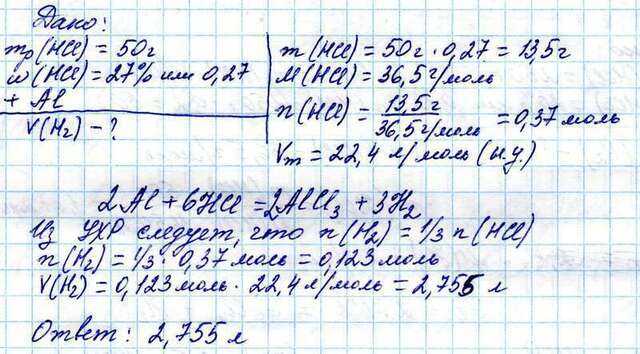 Дано:
mр(HCl) = 50г
ω(HCl) = 27% или 0,27
+ Al
V(H₂) - ?
m(HCl) = 50г · 0,27 = 13,5г
M(HCl) = 36,5г/моль
n(HCl) = 13,5г / 36,5г/моль = 0,37 моль
Vm = 22,4 л/моль (н.у.)
2Al + 6HCl = 2AlCl₃ + 3H₂
Из УХР следует, что n(H₂) = 1/3 n(HCl)
n(H₂) = 1/3 · 0,37 моль = 0,123 моль
V(H₂) = 0,123 моль · 22,4 л/моль = 2,755 л
Ответ: 2,755 л